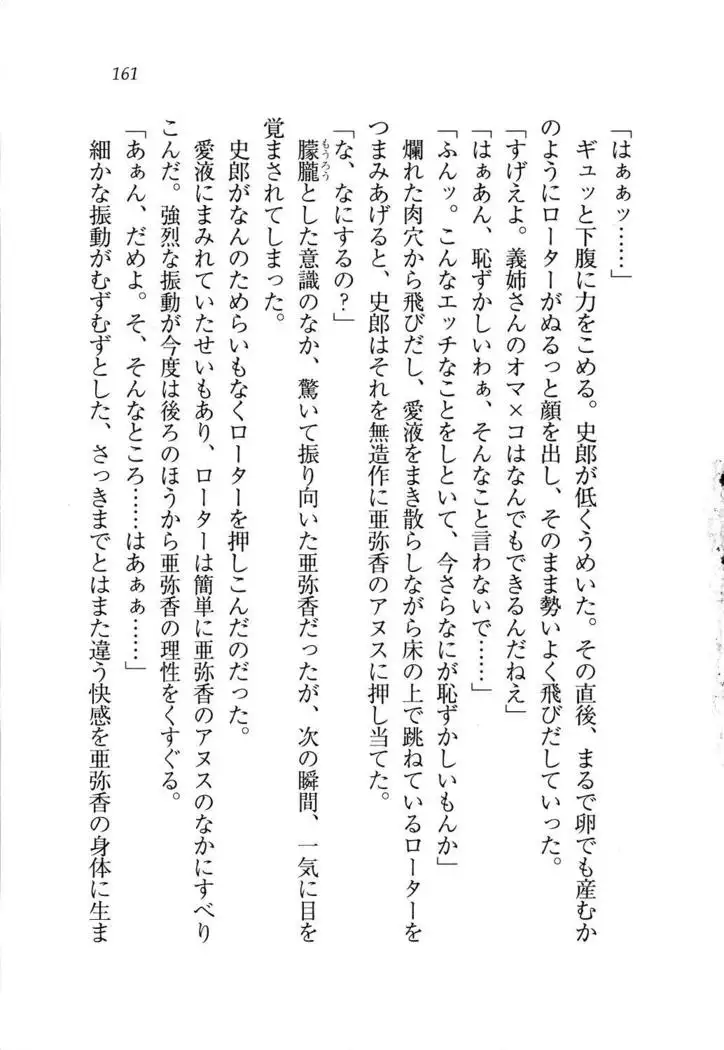 161
「はぁぁッ……」
ギュッと下腹に力をこめる。史郎が低くうめいた。その直後、まるで卵でも産むか
のようにローターがぬるっと顔を出し、そのまま勢いよく飛びだしていった。
「すげえよ。義姉さんのオマ×コはなんでもできるんだねえ」
「はぁあん、恥ずかしいわぁ、そんなこと言わないで……」
「ふんッ。こんなエッチなことをしといて、今さらなにが恥ずかしいもんか」
爛れた肉穴から飛びだし、愛液をまき散らしながら床の上で跳ねているローターを
つまみあげると、史郎はそれを無造作に亜弥香のアヌスに押し当てた。
「な、なにするの？」
朦朧とした意識のなか、驚いて振り向いた亜弥香だったが、次の瞬間、一気に目を
もうろう
覚まされてしまった。
史郎がなんのためらいもなくローターを押しこんだのだった。
愛液にまみれていたせいもあり、ローターは簡単に亜弥香のアヌスのなかにすべり
こんだ。強烈な振動が今度は後ろのほうから亜弥香の理性をくすぐる。
「あぁん、だめよ。そ、そんなところ……はあぁぁ……」
細かな振動がむずむずとした、さっきまでとはまた違う快感を亜弥香の身体に生ま